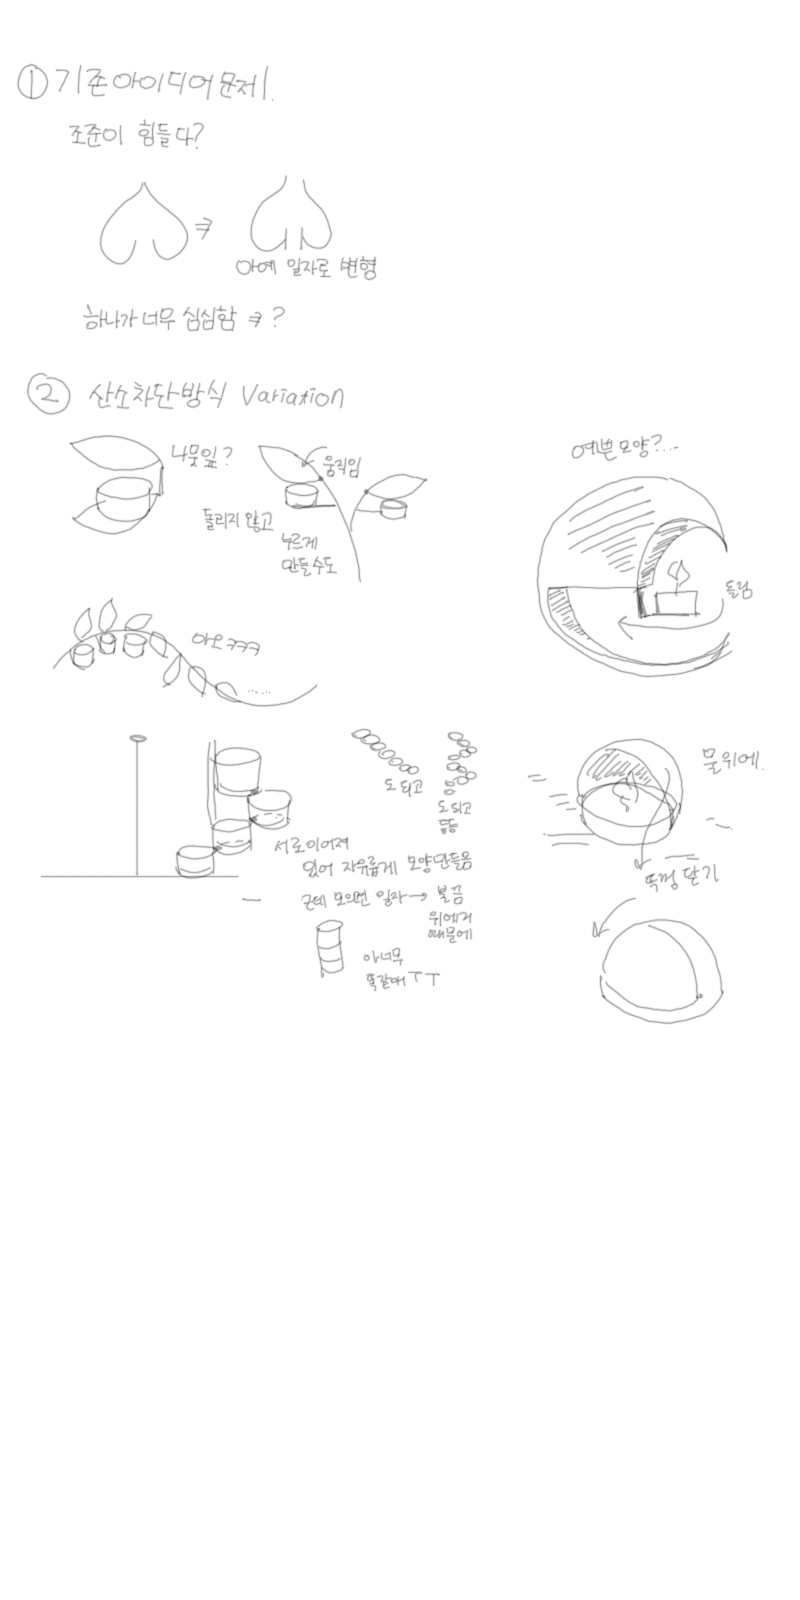 ① 기존아이디어문제.
조준이 힘들다?
아예 일자로 변형
하나가 너무 심심함 ⇒ ?
② 산소차단방식 Variation
나뭇잎?
움직임
돌리지 않고
누르게
만들수도
예쁜모양?...
돌림
아오ㅋㅋㅋ
도 되고
도되고
서로이어져
있어 자유롭게 모양만듦
근데 모으면 일자→ 불끔
위에거
때문에
아너무
똑같애ㅜㅜ
물위에.
뚜껑 닫기